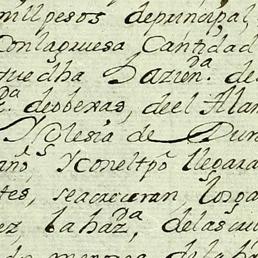 mill pesos deprincipal,
Conlagruesa Cantidad
quedha Hazien.da de
de obexas, de el Alam
Yglesia de Dur
años, Y con el tpõ llegara
tes, seacrecieran, los ga
ez, la haz.da, de las cu